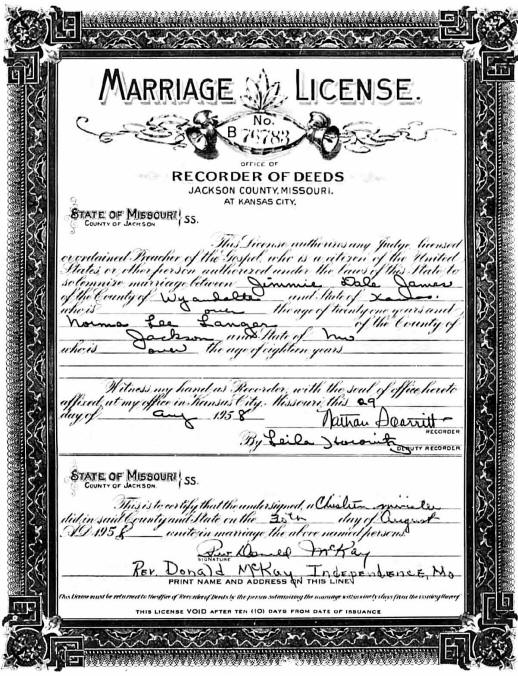 MARRIAGE LICENSE.
No.
B 76783
OFFICE OF
RECORDER OF DEEDS
JACKSON COUNTY, MISSOURI.
AT KANSAS CITY.
STATE OF MISSOURI
COUNTY OF JACKSON
SS.
This License authorizes any Judge, licensed
or ordained Preacher of the Gospel, who is a citizen of the United
States or other person authorized under the laws of this State to
solemnize marriage between Jimmie Dale James
of the County of Wyandotte and State of
who is over the age of twenty one years and
Norma Lee Langer of the County of
Jackson and State of Mo
who is over the age of eighteen years
Witness my hand as Recorder, with the seal of office hereto
affixed, at my office in Kansas City, Missouri, this 29
day of Aug 1958
Nathan Scarritt
RECORDER
By Leila
DEPUTY RECORDER
STATE OF MISSOURI
COUNTY OF JACKSON
SS.
This is to certify that the undersigned, a Christian minister
did in said County and State on the 30th day of August
A.D. 1958 unite in marriage the above named persons.
Rev Donald McKay
SIGNATURE
REV. DONALD MCKAY INDEPENDENCE, MO
PRINT NAME AND ADDRESS ON THIS LINE
This License must be returned to the office of Recorder of Deeds by the person solemnizing the marriage within ninety days from the issuing thereof
THIS LICENSE VOID AFTER TEN (10) DAYS FROM DATE OF ISSUANCE